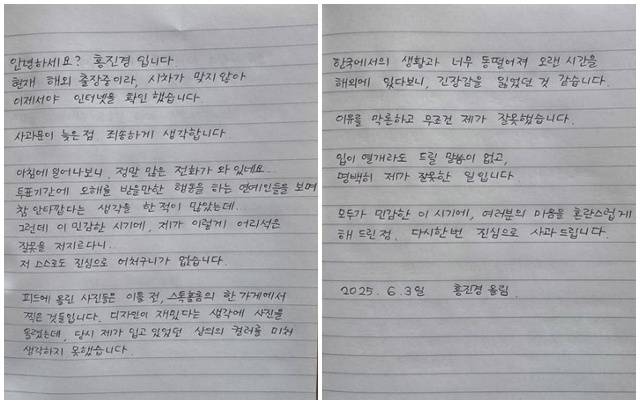 안녕하세요? 홍진경 입니다
현재 해외 출장중이라, 시차가 맞지않아
이제서야 인터넷을 확인 했습니다
사과문이 늦은점 죄송하게 생각합니다
아침에 일어나보니, 정말 많은 전화가 와 있네요..
투표기간에 오해를 받을만한 행동을 하는 연예인들을 보며
참 안타깝다는 생각을 한 적이 많았는데..
그런데 이 민감한 시기에, 제가 이렇게 어리석은
잘못을 저지르다니..
저 스스로도 진심으로 어처구니가 없습니다.
피드에 올린 사진들은 이틀 전, 스톡홀름의 한 가게에서
찍은 것들입니다. 디자인이 재밌다는 생각에 사진을
올렸는데, 당시 제가 입고 있었던 상의의 컬러를 미쳐
생각하지 못했습니다.
한국에서의 생활과 너무 동떨어져 오랜 시간을
해외에 있다보니, 긴장감을 잃었던 것 같습니다.
이유를 막론하고 무조건 제가 잘못했습니다.
입이 열개라도 드릴 말씀이 없고,
명백히 제가 잘못한 일입니다.
모두가 민감한 이 시기에, 여러분의 마음을 혼란스럽게
해 드린 점. 다시한번 진심으로 사과드립니다.
2025. 6.3일 홍진경 올림.